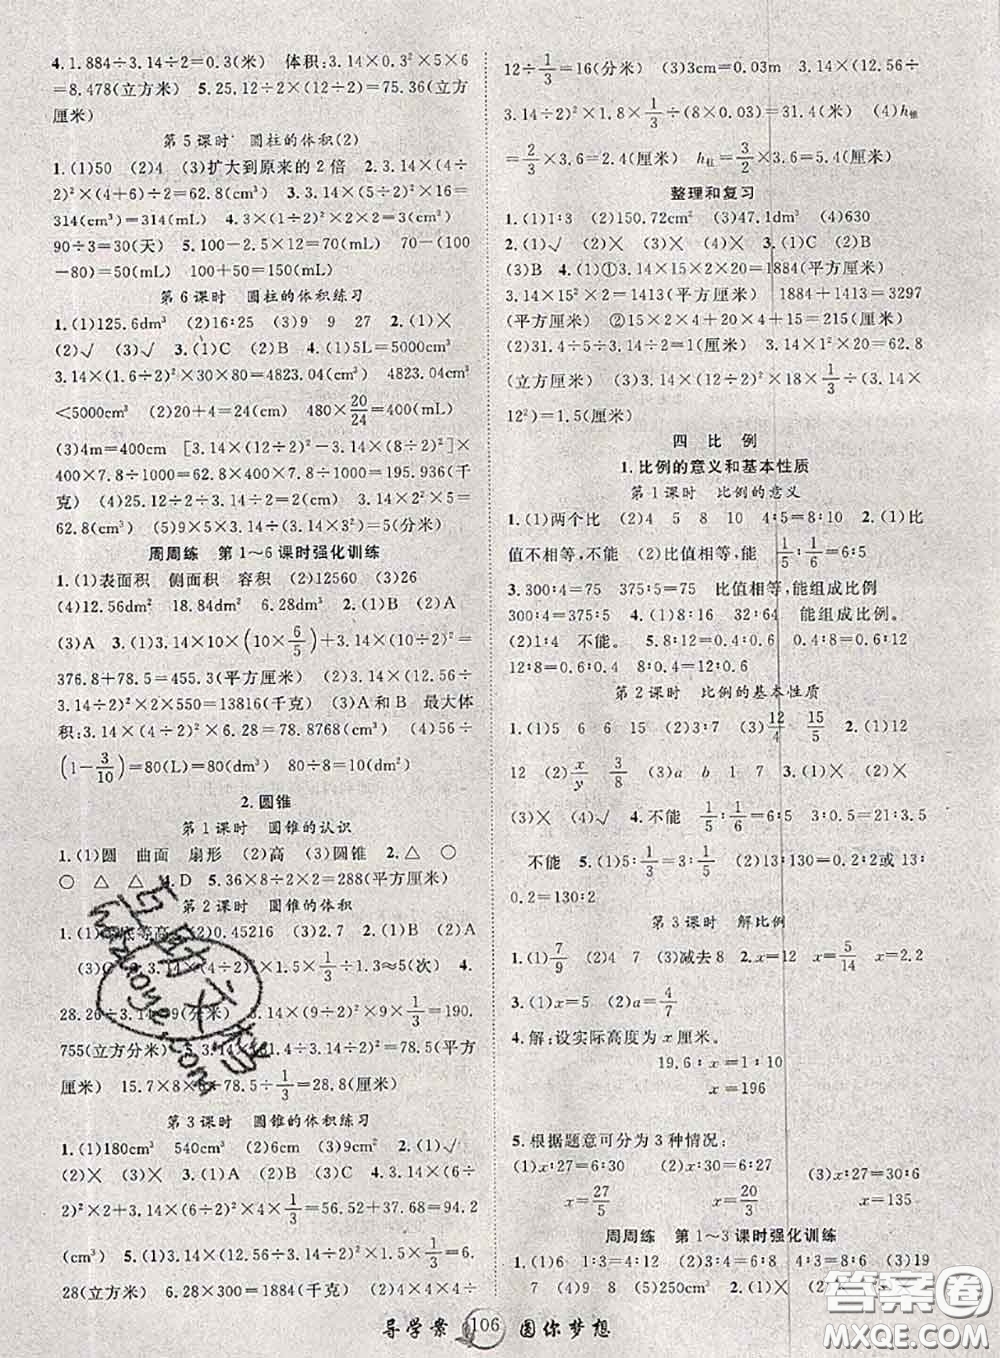 4.1.884÷3.14÷2=0.3(米) 体积:3.14×0.3²×5×6
=8.478(立方米) 5.25.12÷2×(2×3)=75.36(立方
厘米)
第5课时 圆柱的体积(2)
1.(1)50 (2)4 (3)扩大到原来的2倍 2.3.14×(4÷
2)²×(4+6)÷2=62.8(cm³) 3.3.14×(5÷2)²×16=
314(cm³)=314(mL) 4.3×(1÷2)²×2×3×20=
90÷3=30(天) 5.100-2.5×20=50(mL) 70-(100
-80)=50(mL) 100+50=150(mL)
第6课时 圆柱的体积练习
1.(1)125.6dm³ (2)16∶25 (3)9 9 27 2.(1)×
(2)√ (3)√ 3.(1)C (2)B 4.(1)5L=5000cm³
3.14×(16÷2)²×30×80%=4823.04(cm³) 4823.04cm³
<5000cm³ (2)20+4=24(cm) 480×20/24=400(mL)
(3)4m=400cm [3.14×(10÷2)²-3.14×(8÷2)²]×
400×7.8÷1000=62.8×400×7.8÷1000=88.2(千
克) (4)12.56÷2÷3.14÷2=2(cm) 3.14×2²×5=
62.8(cm³) (5)9×5×3.14÷(3.14×3²)=5(分米)
周周练 第1~6课时强化训练
1.(1)表面积 侧面积 容积 (2)12560 (3)26
(4)12.56dm² 12.56dm³ 2.(1)B (2)A
(3)A 3.(1)3.14×10×(10×6/5)+3.14×(10÷2)²=
376.8+78.5=455.3(平方厘米) (2)3.14×(12.56÷
3.14÷2)²×2×550=13816(千克) (3)A和B 最大体
积:3.14×(4÷2)²×6.28=78.8768(cm³) (4)56÷
(1-3/10)=80(L)=80(立方分米) 80÷16=5(分米)
2.圆锥
第1课时 圆锥的认识
1.(1)圆 曲面 扇形 (2)高 (3)圆锥 2.△ ○
○ △ △ 4.D 5.36×8÷2×2=288(平方厘米)
第2课时 圆锥的体积
底等高 (2)0.45216 (3)2.7 2.(1)B (2)A
(3)C ×1/3÷1.3≈5(次) 4.
28.26÷3.14=9(分米) 3.14×(9÷2)²×9×1/3=190.
755(立方分米) 5.3.14×(31.4÷3.14÷2)²=78.5(平方
厘米) 15.7×8×6÷78.5÷1/3=28.8(厘米)
第3课时 圆锥的体积练习
1.(1)180cm³ 540cm³ (2)60cm³ (3)9cm² 2.(1)×
(2)× (3)× 3.(1)A (2)B (3)C 4.3.14×(6÷
2)²×2+3.14×(6÷2)²×4×1/3=56.52+37.68=94.2
(cm³) 5.(1)3.14×(2÷2)²×(9-3)×1/3=6.
28(立方米) 6.28×300=1884(千克) (2)4×4×4÷
12÷1/3=16(分米) (3)3cm=0.03m 3.14×(12.56÷
3.14÷2)²×1.8×1/3÷(8×0.03)=31.4(米) (4)h锥
=2/3×3.6=2.4(厘米) h柱=3/2×3.6=5.4(厘米)
整理和复习
1.(1)1∶3 (2)150.72cm² (3)47.1dm³ (4)630
2.(1)√ (2)× (3)× (4)× 3.(1)B (2)C
(3)B 4.(1)①3.14×15×2×20=1884(平方厘米)
3.14×15²×2=1413(平方厘米) 1884+1413=3297
(平方厘米) ②15×2×4+20×4+15=215(厘米)
(2)31.4÷5÷2÷3.14=1(厘米) 3.14×1²×20=62.8
(立方厘米) (3)3.14×(12÷2)²×18×1/3÷(3.14×
12²)=1.5(厘米)
四 比例
1.比例的意义和基本性质
第1课时 比例的意义
1.(1)两个比 (2)4 5 8 10 4∶5=8∶10 2.(1)比
值不相等,不能 (2)比值相等,能 1/5∶1/6=6∶5
3.300∶4=75 375∶5=75 比值相等,能组成比例
300∶4=375∶5 4.(1)8∶16 32∶64 能组成比例。
(2)1∶4 不能。 5.8∶12=0.4∶0.6 0.4∶8=0.6∶12
12∶8=0.6∶0.4 8∶0.4=12∶0.6
第2课时 比例的基本性质
1.(1)5 6 6 15 (2)3∶7 (3)12/4 15/5 2.(1)12
12 (2)x/y 3/8 (3)a b 1 7 3.(1)× (2)×
(3)√ (4)√ 4.不能 1/5∶1/6=6∶5 3∶0.5=21∶3.5
不能 5.(1)5∶1/4=4∶1/5 (2)130∶2=13∶0.2或
13∶0.2=130∶2
第3课时 解比例
1.(1)7/9 (2)4 7 (3)减去8 2.x=12 x=5/14 x=2.2
3.(1)x=5 (2)a=4/7
4.解:设实际高度为x厘米。
19.6∶x=1∶10
x=196
5.根据题意可分为3种情况:
(1)x∶27=6∶30 (2)x∶30=6∶27 (3)x∶27=30∶6
x=27/5 x=20/3 x=135
周周练 第1~3课时强化训练
1.(1)6 1∶3=4∶12 (2)4∶3=8∶6 (3)19
7 (4)8 (5)250cm³ 2.(1)√
导学案 106 圆你梦想
答案圈
MXQE.COM